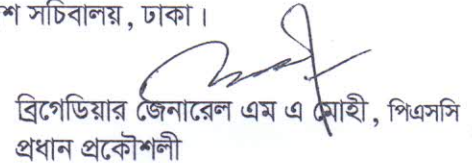 শ সচিবালয়, ঢাকা।
ব্রিগেডিয়ার জেনারেল এম এ মোহী, পিএসসি
প্রধান প্রকৌশলী